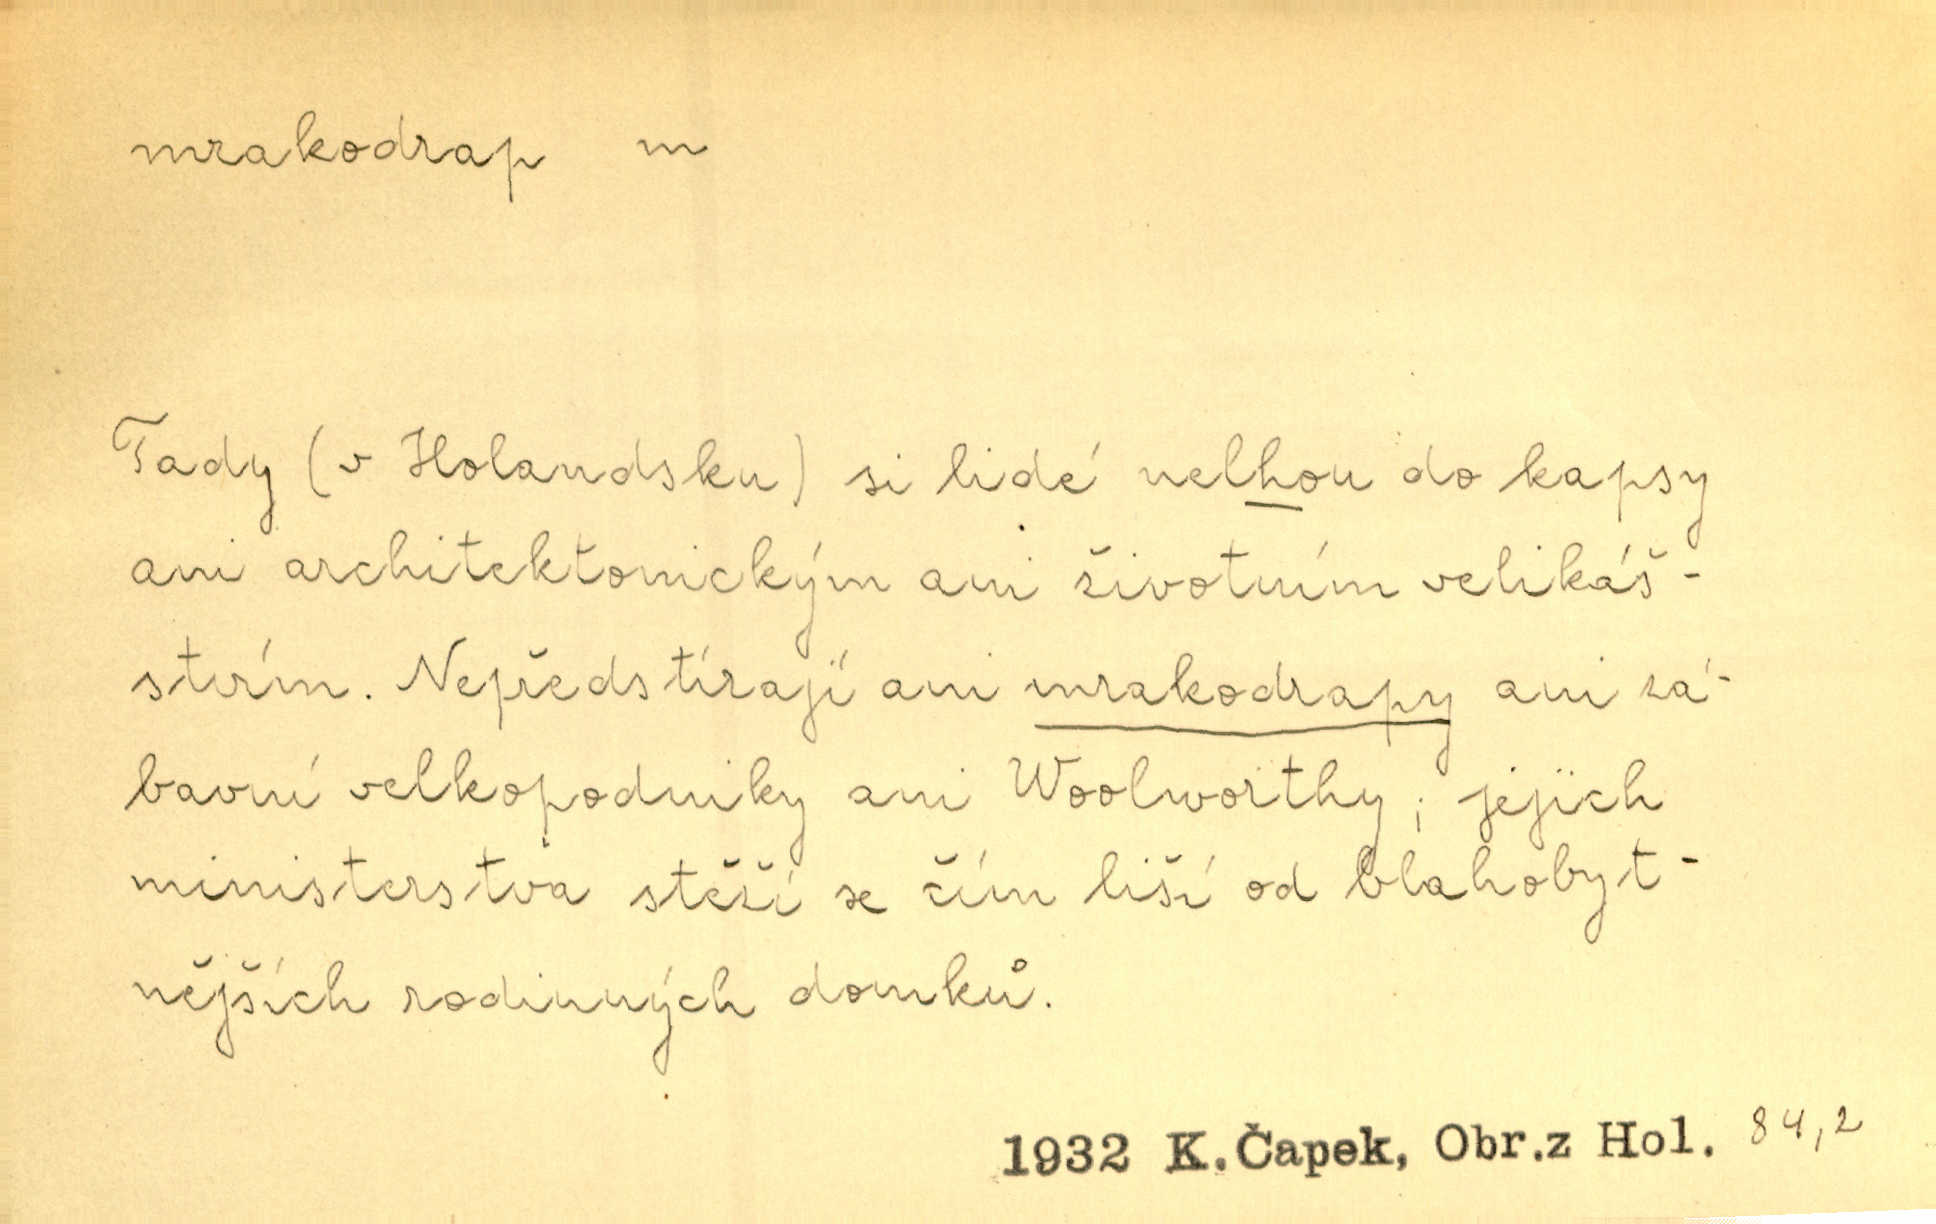 mrakodrap m
Tady (v Holandsku) si lidé nelhou do kapsy
ani architektonickým ani životním velikáš-
stvím. Nepředstírají ani mrakodrapy ani zá-
bavní velkopodniky ani Woolworthy; jejich
ministerstva stěží se čím liší od blahobyt-
nějších rodinných domků.
1932 K.Čapek, Obr.z Hol. 84,2